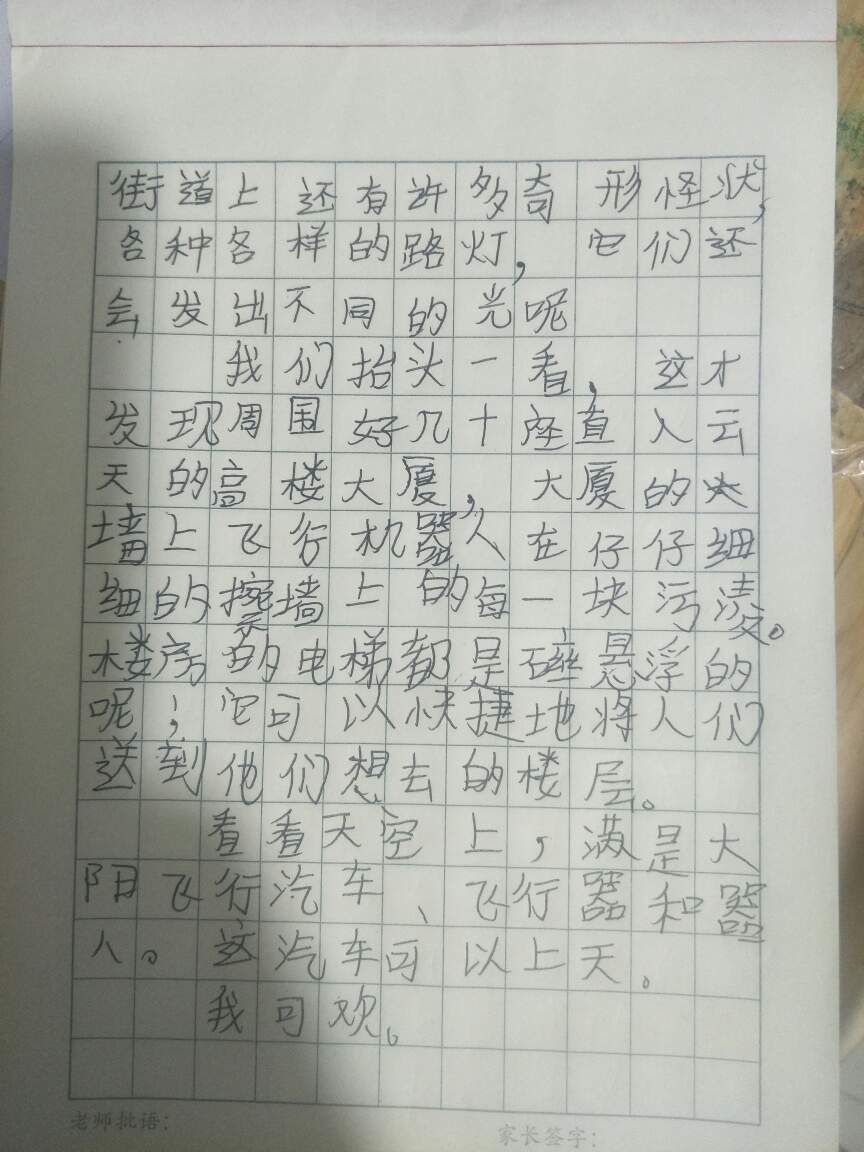 街道上还有许多奇形怪状,
各种各样的路灯,它们还
会发出不同的光呢
我们抬头一看,这才
发现周围好几十座直入云
天的高楼大厦,大厦的
墙上飞行机器人在仔仔细
细的擦墙上的每一块污渍。
楼房的电梯都是磁悬浮的
呢;它可以快捷地将人们
送到他们想去的楼层。
看看天空上,满是大
阳飞行汽车、飞行器和器
人。这汽车可以上天。
我可欢。
老师批语:
家长签字: